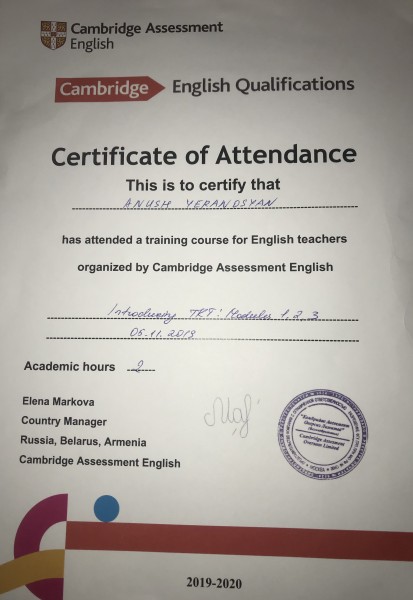 Cambridge Assessment
English
Cambridge English Qualifications
Certificate of Attendance
This is to certify that
ANUSH YERANOSYAN
has attended a training course for English teachers
organized by Cambridge Assessment English
Introducing TKT: Modules 1, 2, 3
06.11.2019
Academic hours 2
Elena Markova
Country Manager
Russia, Belarus, Armenia
Cambridge Assessment English
Cambridge Assessment
Overseas Limited
МОСКВА
2019-2020